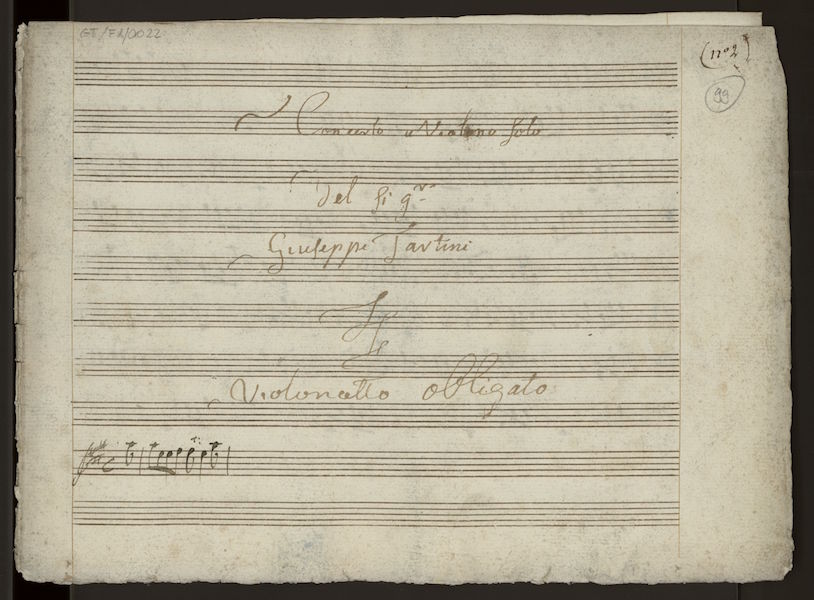 GT/F2/0022
(nº 2)
99
Concerto a Violino Solo
Del Sigr
Giuseppe Tartini
Violoncello obligato